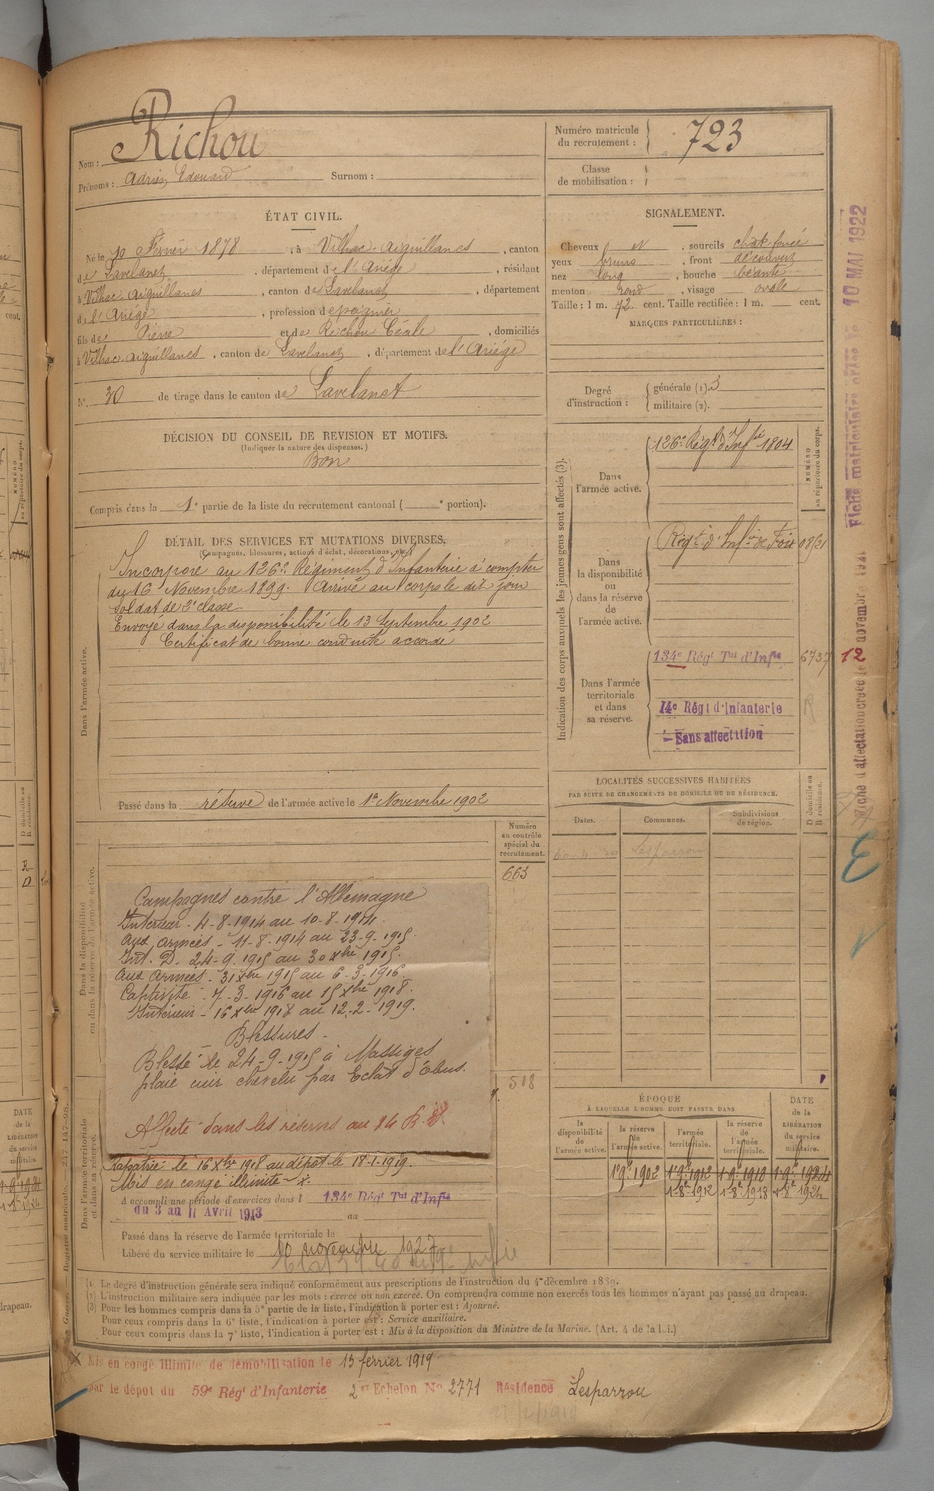 Nom : Richou
Prénoms : Adrien Edouard Surnom :
Numéro matricule du recrutement : 723
Classe de mobilisation :
ÉTAT CIVIL.
Né le 10 Février 1878, à Vilhac-Aiguillanes, canton
de Lavelanet, département de l'Ariège, résidant
à Vilhac Aiguillanes, canton de Lavelanet, département
d l'Ariège, profession de peignier
fils de Pierre et de Richou Cécile, domiciliés
à Vilhac Aiguillanes, canton de Lavelanet, département de l'Ariège
N° 30 de tirage dans le canton de Lavelanet
SIGNALEMENT.
Cheveux N, sourcils chat. foncé
yeux bruns, front découvert
nez long, bouche béante
menton rond, visage ovale
Taille : 1 m. 72 cent. Taille rectifiée : 1 m. cent.
MARQUES PARTICULIÈRES :
Degré d'instruction : générale (1). 3
militaire (2).
DÉCISION DU CONSEIL DE REVISION ET MOTIFS.
(Indiquer la nature des dispenses.)
Bon
Compris dans la 1e partie de la liste du recrutement cantonal ( e portion).
DÉTAIL DES SERVICES ET MUTATIONS DIVERSES.
(Campagnes, blessures, actions d'éclat, décorations, etc.)
Dans l'armée active.
Incorporé au 126e Régiment d'Infanterie à compter
du 16 Novembre 1899. Arrivé au corps le dit jour
soldat de 2e classe
Envoyé dans la disponibilité le 13 Septembre 1902
Certificat de bonne conduite accordé
Passé dans la réserve de l'armée active le 1er Novembre 1902
Indication des corps auxquels les jeunes gens sont affectés (3).
NUMÉRO au répertoire du corps.
Dans l'armée active.
126e Régt d'Infie 1804
Dans la disponibilité ou dans la réserve de l'armée active.
Régt d'Infie de Foix
Dans l'armée territoriale et dans sa réserve.
134e Régt Tal d'Infie 6737
14e Régt d'Infanterie
Sans affectation
12
Fiche matriculaire 10 MAI 1922
Fiche d'affectation créée le novembre 1921
LOCALITÉS SUCCESSIVES HABITÉES
PAR SUITE DE CHANGEMENTS DE DOMICILE OU DE RÉSIDENCE.
Dates. Communes. Subdivisions de région. D domicile ou R résidence.
Lesparrou
Numéro au contrôle spécial du recrutement.
663
518
Dans la disponibilité ou dans la réserve de l'armée active.
Campagnes contre l'Allemagne
Intérieur - 4-8-1914 au 10-8-1914.
Aux armées - 11-8-1914 au 23-9-1915.
Int. D. 24-9-1915 au 30 xbre 1915.
Aux Armées - 31 xbre 1915 au 6-3-1916.
Captivité - 7-3-1916 au 15 xbre 1918.
Intérieur - 16 xbre 1918 au 12-2-1919.
Blessures -
Blessé le 24-9-1915 à Massiges
plaie cuir chevelu par Eclat d'Obus.
Affecté dans les réserves au 14 R.
Dans l'armée territoriale et dans sa réserve.
Rapatrié le 16 Xbre 1918 au dépôt le 18-1-1919.
Mis en congé illimité - x.
A accompli une période d'exercices dans l 134e Régt Tal d'Infie
du 3 au 11 Avril 1913 au
Passé dans la réserve de l'armée territoriale le
Libéré du service militaire le 10 novembre 1927
ÉPOQUE
À LAQUELLE L'HOMME DOIT PASSER DANS
la disponibilité de l'armée active. la réserve de l'armée active. l'armée territoriale. la réserve de l'armée territoriale. DATE de la LIBÉRATION du service militaire.
1-9e 1902
1-8e 1912 1-8e 1918 1-8e 1924
(1) Le degré d'instruction générale sera indiqué conformément aux prescriptions de l'instruction du 4 décembre 1889.
(2) L'instruction militaire sera indiquée par les mots : exercé ou non exercé. On comprendra comme non exercés tous les hommes n'ayant pas passé au drapeau.
(3) Pour les hommes compris dans la 5e partie de la liste, l'indication à porter est : Ajourné.
Pour ceux compris dans la 6e liste, l'indication à porter est : Service auxiliaire.
Pour ceux compris dans la 7e liste, l'indication à porter est : Mis à la disposition du Ministre de la Marine. (Art. 4 de la loi.)
X Mis en congé illimité de démobilisation le 13 février 1919
par le dépôt du 59e Régt d'Infanterie 2e Echelon No 2771 Résidence Lesparrou